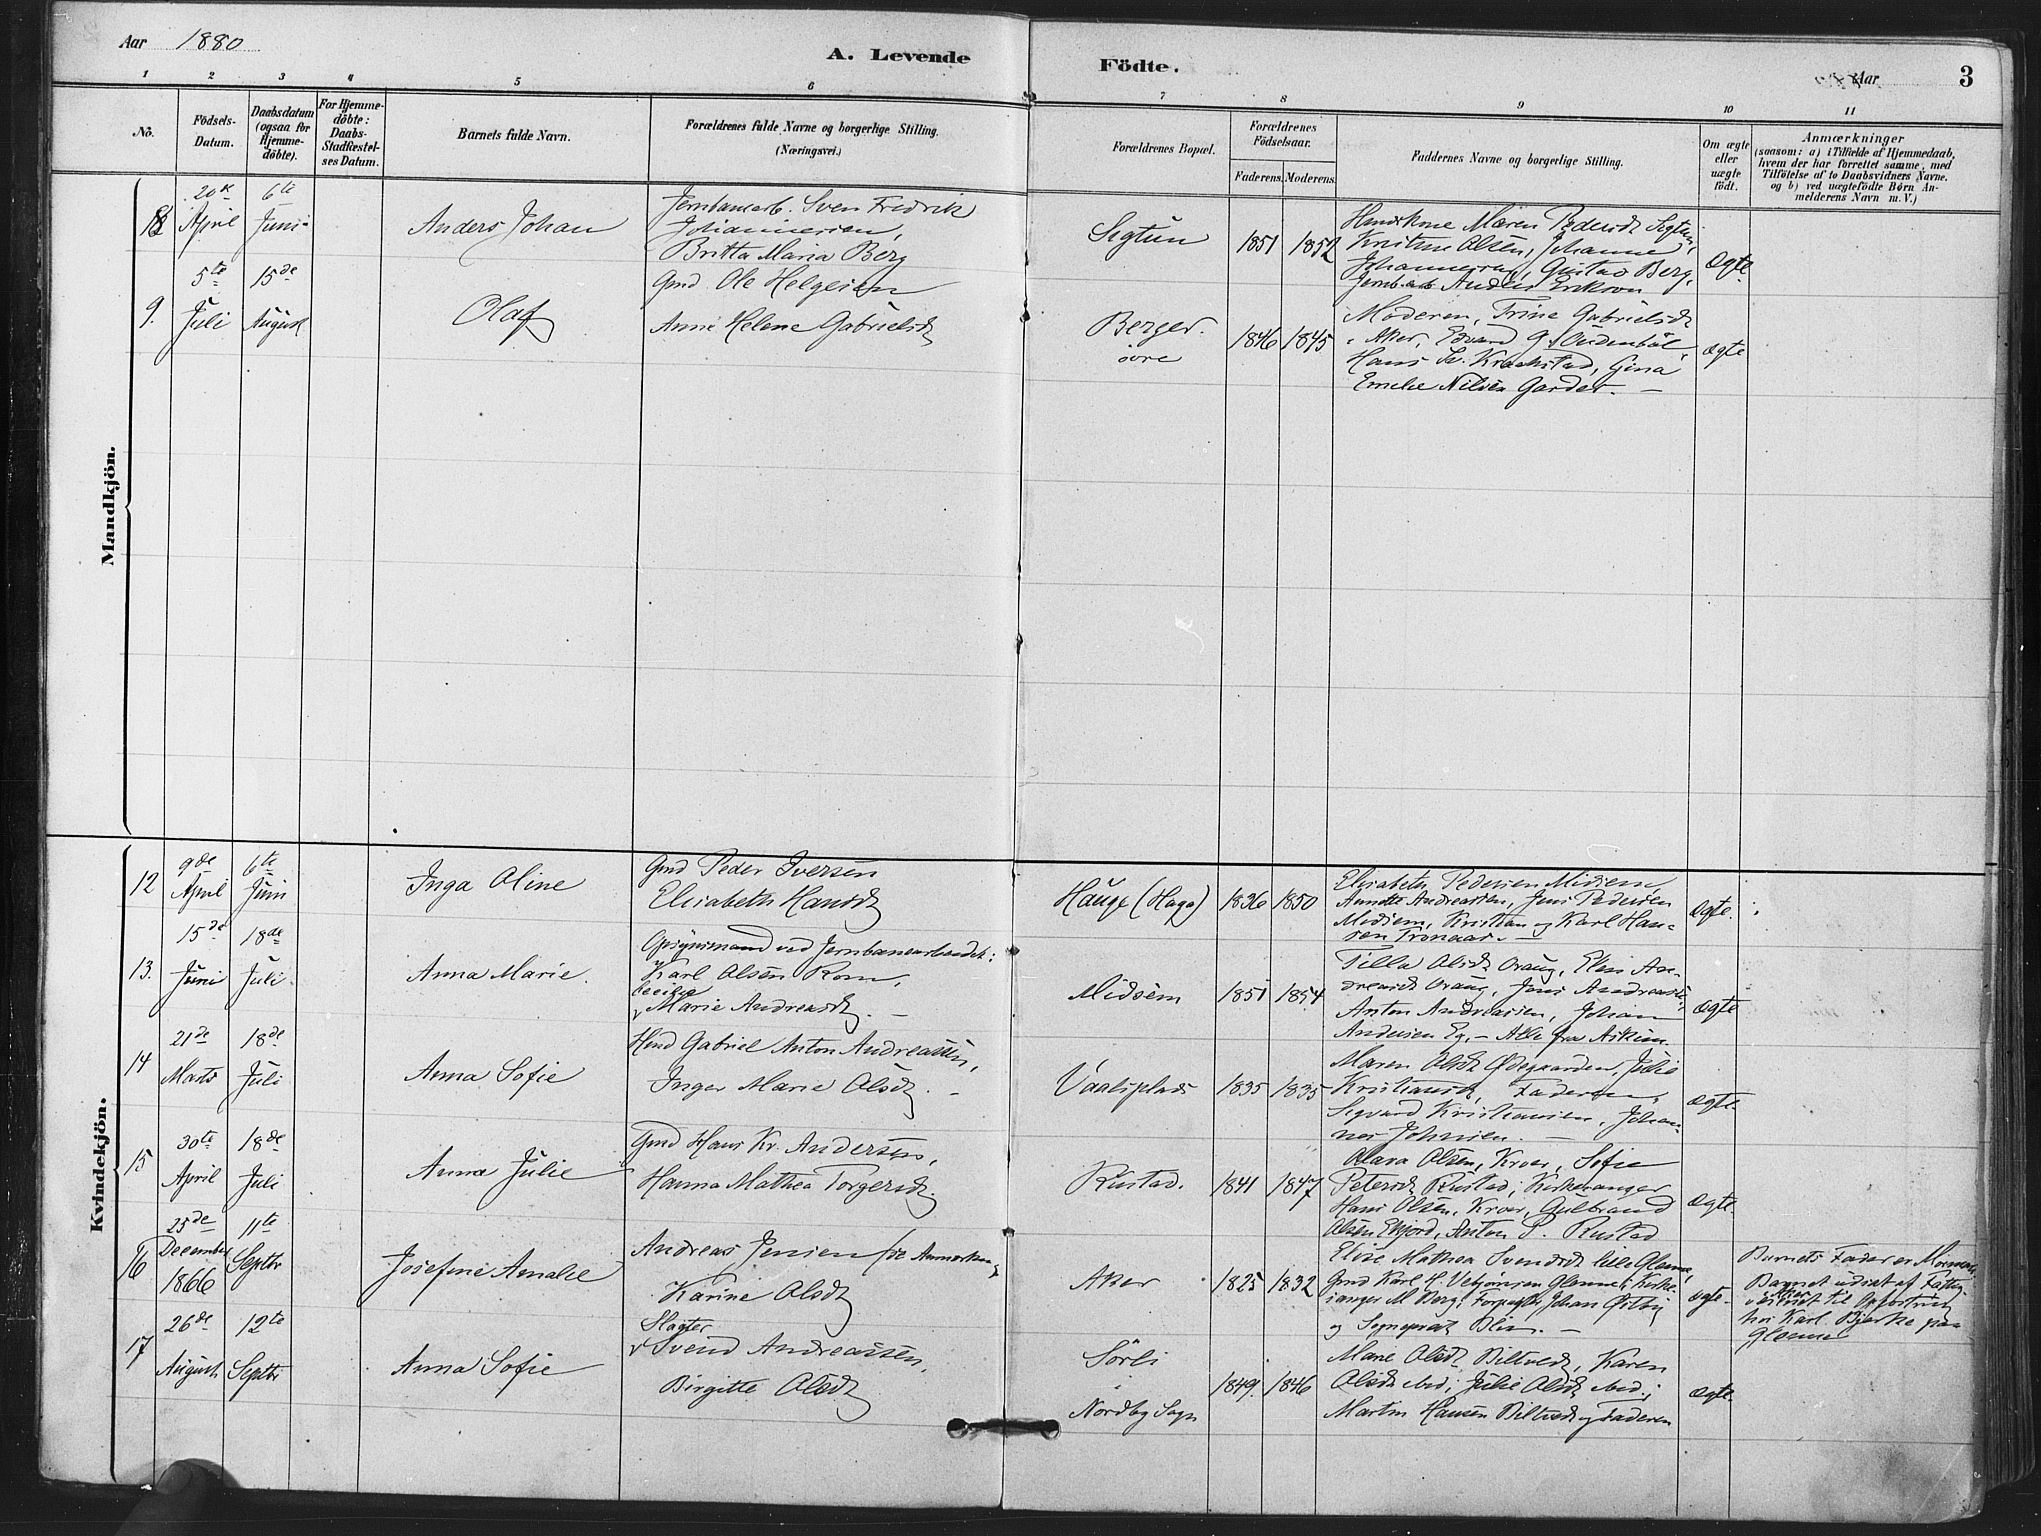 Aar 1880
A. Levende Födte.
Aar 3
1 2 3 4 5 6 7 8 9 10 11
No.
Födsels-
Datum.
Daabsdatum
(ogsaa for
Hjemme-
döbte).
For Hjemme-
döbte:
Daabs-
Stadfæstel-
ses Datum.
Barnets fulde Navn.
Forældrenes fulde Navne og borgerlige Stilling.
(Næringsvei.)
Forældrenes Bopæl.
Forældrenes
Födselsaar.
Faderens. Moderens.
Faddernes Navne og borgerlige Stilling.
Om ægte
eller
uægte
födt.
Anmærkninger
(saasom: a) i Tilfælde af Hjemmedaab,
hvem der har forrettet samme, med
Tilföielse af to Daabsvidners Navne,
og b) ved uægtefödte Börn An-
melderens Navn m. V.)
Mandkjön.
8
20de
April
6te
Juni
Anders Johan
Jernbanearb. Sven Fredrik
Johannesen,
Britta Maria Berg
Sigtun
1851 1852
Huuskone Maren Pedersdt Sigtun,
Kristine Olsen, Johanne
Gustav Berg,
Jernb.arb Anders Erikson
Ægte.
9.
5te
Juli
15de
August
Olaf
Gmd Ole Helgesen
Anne Helene Gabrielsdt
Berger
övre
1846 1845
Moderen, Trine Gabrielsdt
Aker, Edvard G.
Hans Kr. Krachstad, Gina
Emelie Nilsen Garder. —
ægte
Kvindekjön.
12
9de
April
6te
Juni
Inga Oline
Gmd Peder Iversen
Elisabeth Hansdt
Hauge (Haga)
1836 1850
Elisabeth Pedersen Midsem,
Annette Andreassen, Jens Pedersen
Midsem, Kristian og Karl Han-
sen Tronaas. —
Ægte.
13.
15de
Juni
18de
Juli
Anna Marie.
Opsynsmand ved Jernbanearbeidet:
Karl Olsen Kom,
Cecilie
Marie Andreasdt. —
Midsem
1851 1854
Tilla Olsdt Oraug, Elen An-
dreasdt Oraug, Jens Andreassen,
Anton Andreassen, Johan
Andersen Eg. — Alle fra Askim.
Ægte
14
21de
Marts
18de
Juli
Anna Sofie
Hmd Gabriel Anton Andreassen,
Inger Marie Olsdt. —
Vaalsplads
1835 1835
Maren Olsdt Ødegaarden, Julie
Kristiansdt, Faderen,
Sigvard Kristiansen, Johan-
nes Johnsen. —
ægte
15
30te
April
18de
Juli
Anna Julie
Gmd Hans Kr. Andersen,
Hanna Mathea Torgersdt.
Rustad.
1841 1847
Olava Olsen, Kroer, Sofie
Petersdt Rustad; Kirkesanger
Hans Olsen, Kroer, Gulbrand
Olsen Ekjord, Anton P. Rustad
Ægte.
16
25de
December
1866
11te
Septbr
Josefine Amalie
Andreas Jensen (se Anmærkning
Karine Olsdt
Aker
1825 1832
Elise Mathea Svendsdt lille Glenne,
Gmd Karl H. Glenne; Kirke-
sanger M Berg; Johan Østby
og Sogneprest Blix. —
ægte.
Barnets Fader er Mormon.
Barnet udsat af Fattig-
væsenet til Opfostring
hos Karl Bjerke paa
Glenne
17
26de
August
12te
Septbr
Anna Sofie
Slagter
Svend Andreassen,
Birgitte Olsdt
Sörli
Nordby Sogn
1849. 1846
Marie Olsdt Biltvedt, Karen
Olsdt ibid; Julie Olsdt ibid;
Martin Hansen Biltvedt og Faderen
ægte.